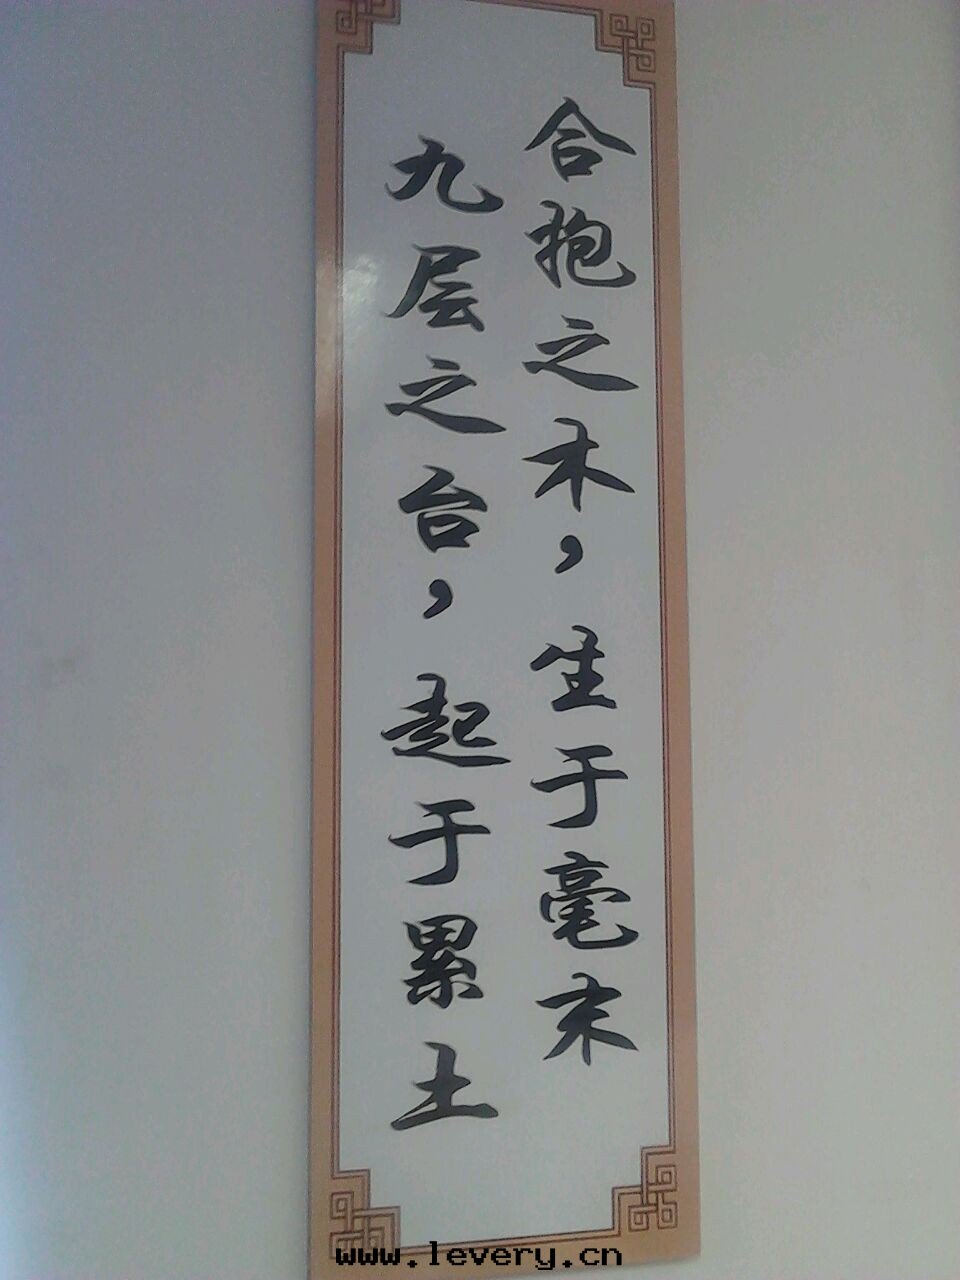 合抱之木，生于毫末
九层之台，起于累土
www.levery.cn